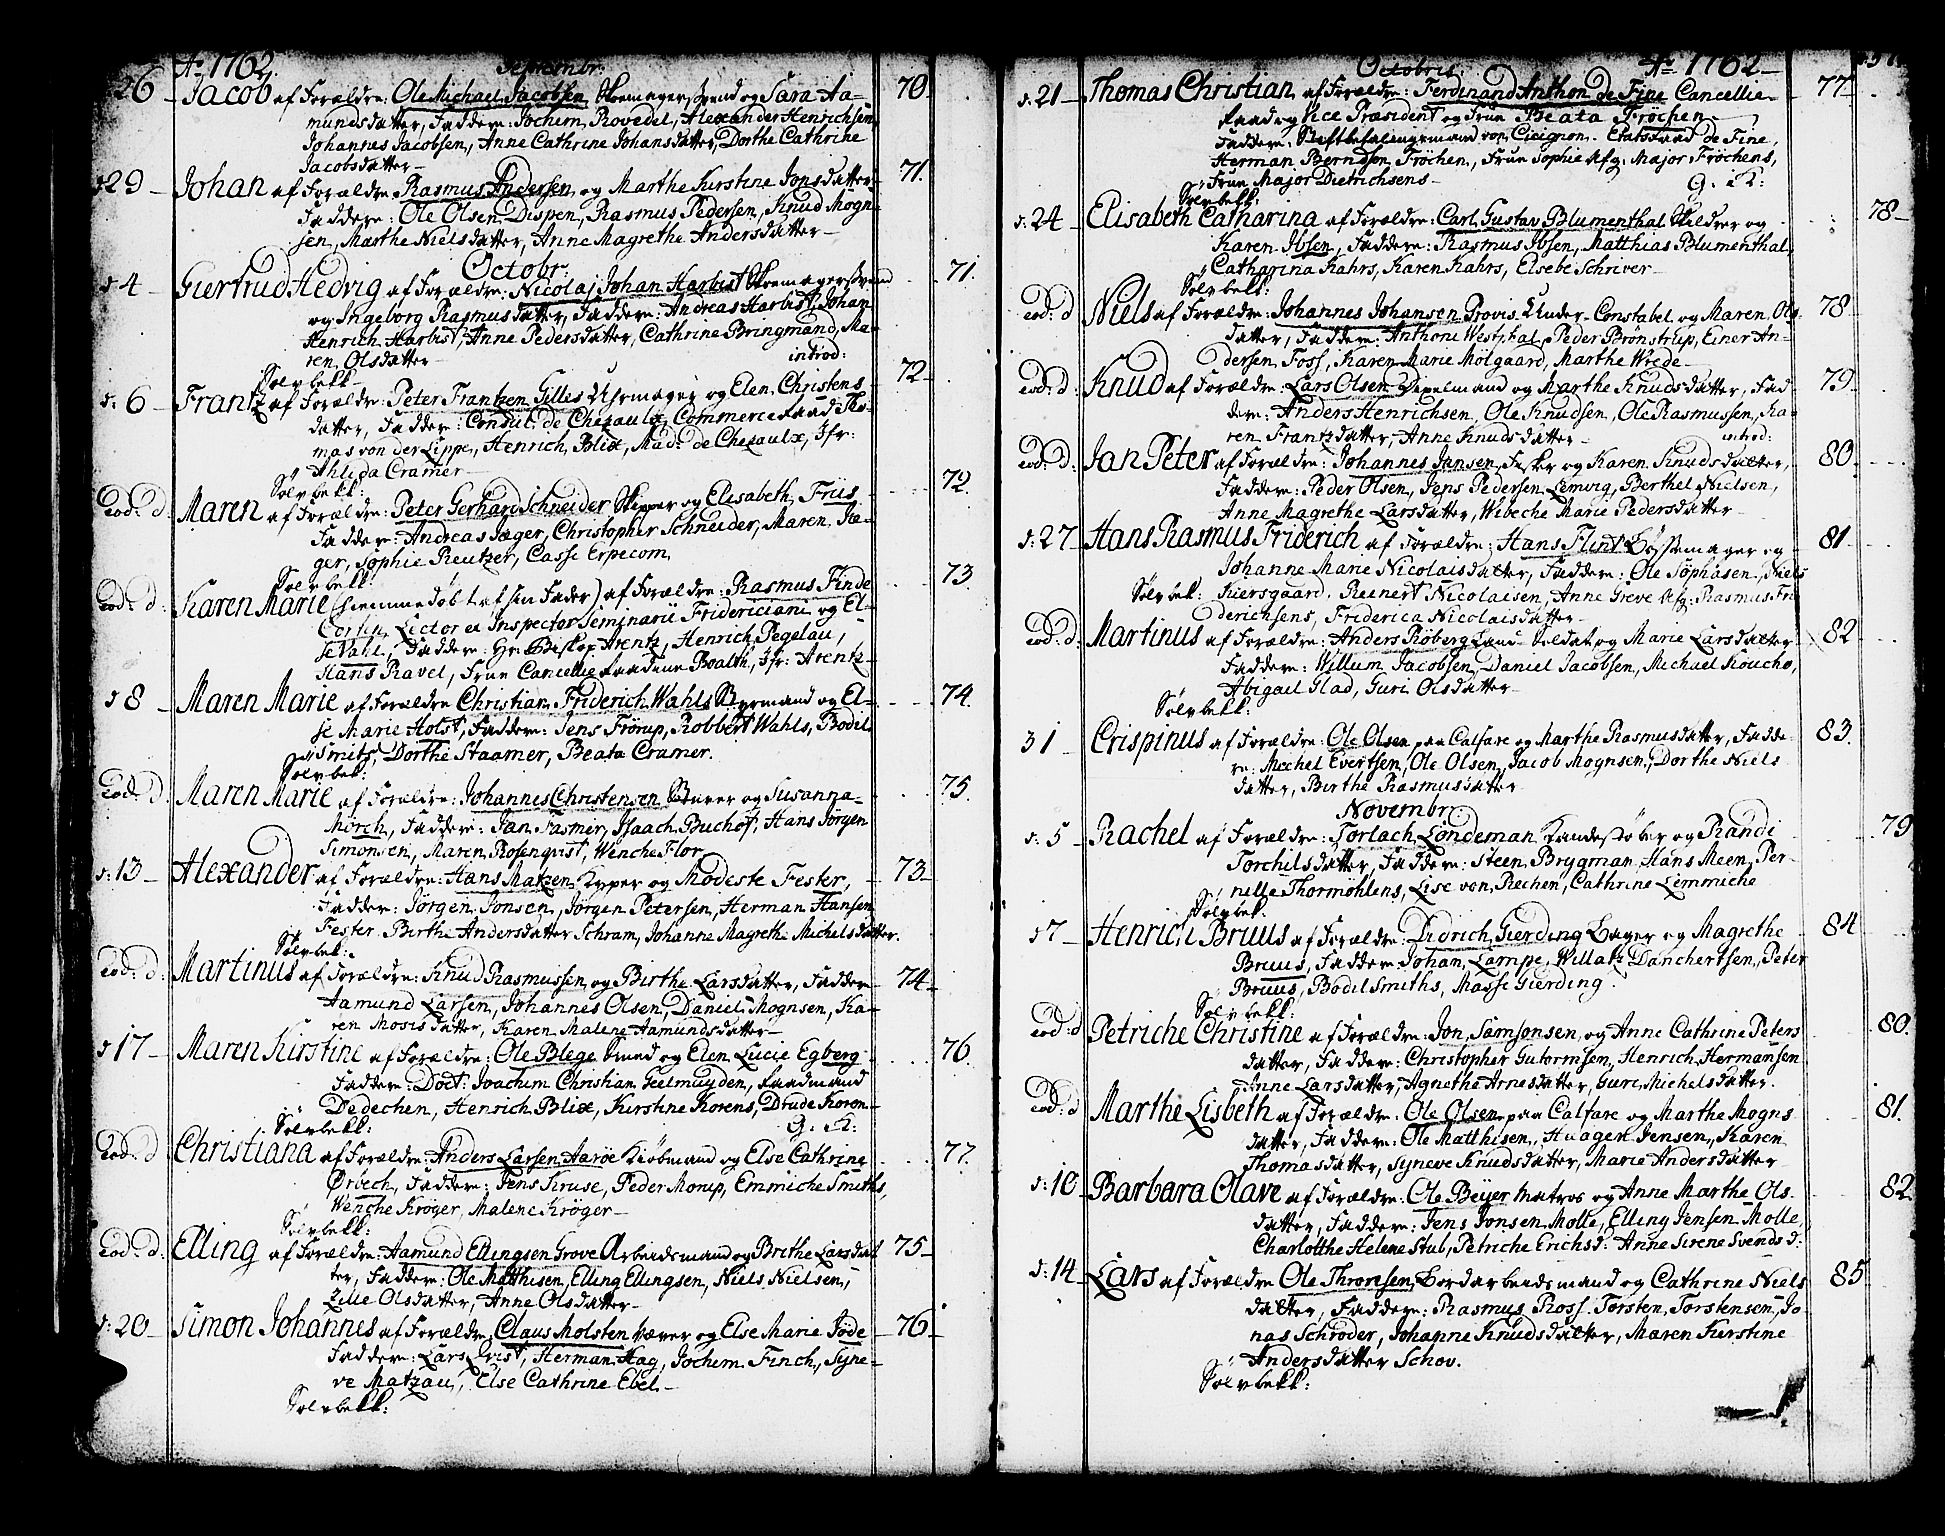 Ao 1762. Septembr:
26 Jacob af Forældre: Ole Michael Jacobsen Skomagersvend og Sara Aa- 70
mundsdatter, Faddere: Jochem Rovedel, Alexander Henrichsen,
Johannes Jacobsen, Anne Cathrine Johansdatter, Dorthe Cathrine
Jacobsdatter
d 29 Johan af Forældre Rasmus Andersen, og Marthe Kirstine Jonsdatter 71.
Faddere: Ole Olsen Dispen, Rasmus Pedersen, Knud Mogn-
sen, Marthe Nielsdatter, Anne Magrethe Andersdatter
Octobr:
d 4 Giertrud Hedvig af Forældre: Nicolaj Johan Harbist Skomagersvend 71.
og Ingeborg Rasmusdatter, Faddere: Andreas Harbist, Johan
Henrich Harbist, Anne Pedersdatter, Cathrine Bringmand, Ma-
ren Olsdatter introd:
Sølvbekk
d: 6 Frantz af Forældre: Peter Frantzen Gilles Uhrmager og Elen Christens 72
datter, Faddere: Consul de Chezaulx, Commerce Raad Tho-
mas von der Lippe, Henrich Blix, Mad: de Chezaulx, Jfr:
Ahlida Cramer
Sølvbekk:
eod: d: Maren af Forældre: Peter Gerhard Schneider Skipper og Elisabeth Friis 72.
Faddere: Andreas Jæger, Christopher Schneider, Maren Jæ-
ger, Sophie Reutzer, Casse Erpecom
Sølvbekk:
eod: d: Karen Marie (hiemmedøbt at sin Fader) af Forældre: Rasmus Finde 73
Cortin Lector et Inspector Seminarii Fridericiani og El-
se Vahl, Faddere: Hr Biskop Arentz, Henrich Pegelau,
Hans Ravel, Frue Cancellieraadinne Boalth, Jfr: Arentz
d 8 Maren Marie af Forældre Christian Friderich Wahls Styrmand og El- 74.
se Marie Holst, Faddere: Jens Frörup, Robbert Wahls, Bodil
Smits, Dorthe Staamer, Beata Cramer.
Sølvbek:
eod: d. Maren Marie af Forældre: Johannes Christensen Bruver og Susanna 75.
Mörch, Faddere: Jan Fasmer, Isaach Buchof, Hans Jörgen
Simonsen, Maren Rosenqvist, Wenche Flor
d: 13 Alexander af Forældre: Hans Matzen Kyper og Modeste Fester, 73
Faddere: Jörgen Jonsen, Jörgen Petersen, Herman Hansen
Fester Birthe Andersdatter Schram, Johanne Magrethe Michelsdatter.
Sølvbek:
eod: d: Martinus af Forældre: Knud Rasmussen og Birthe Larsdatter, Faddere 74
Aamund Larsen, Johannes Olsen, Daniel Mognsen, Ka-
ren Mosisdatter, Karen Malene Aamundsdatter
d 17 Maren Kirstine af Forældre: Ole Blege Smed og Elen Lucie Egberg 76.
Faddere: Doct: Joachim Christian Geelmuyden, Raadmand
Dedechen, Henrich Blix, Kirstine Korens, Drude Koren
Sølvbekk:
eod: d Christiana af Forældre: Anders Larsen Aaröe Kiöbmand og Else Cathrine 77.
Örbech, Faddere: Jens Kruse, Peder Morup, Emmiche Smiths,
Wenche Kröger, Malene Kröger
Sølvbekk:
eod: d: Elling af Forældre: Aamund Ellingsen Grove Arbeidsmand og Brithe Larsdat 75
ter, Faddere: Ole Matthisen, Elling Ellingsen, Niels Nielsen,
Zille Olsdatter, Anne Olsdatter
d: 20 Simon Johannes af Forældre: Claus Molsten Væver og Else Marie Jöde 76
Faddere: Lars Qvist, Herman Hag, Jochem Finch, Syne-
ve Matzau, Else Cathrine Ebel
Sølvbekk:
Octobris. Ao 1762
d: 21 Thomas Christian af Forældre: Ferdinand Anthon de Fine Cancellie 77
Raad og Vice Præsident og Frue Beata Fröchen
Faddere: Stiftbefalingsmand von Cicignon. Etatsraad de Fine,
Herman Berndsen Fröchen, Frue Sophie Afg: Major Fröchens,
Frue Major Dietrichsens
Sølvbekk:
d: 24 Elisabeth Catharina af Forældre: Carl Gustav Blumenthal Skildrer og 78
Karen Ibsen, Faddere: Rasmus Ibsen, Matthias Blumenthal
Catharina Kahrs, Karen Kahrs, Elsebe Schriver
Sølvbekk:
eod: d Niels af Forældre: Johannes Johansen Provis. Under-Constabel og Maren Ols 78
datter, Faddere: Anthoni Westphal, Peder Brönstrup, Einer An-
dersen Foss, Karen Marie Mölgaard, Marthe Wrede
eod: d: Knud af Forældre: Lars Olsen Dispelmand og Marthe Knudsdatter, Fad- 79
dere: Anders Henrichsen, Ole Knudsen, Ole Rasmussen, Ka-
ren Frantzdatter, Anne Knudsdatter introd:
eod: d: Jan Peter af Forældre: Johannes Jansen Fisker og Karen Knudsdatter, 80
Faddere: Peder Olsen, Jens Pedersen Lemvig, Berthel Nielsen,
Anne Magrethe Larsdatter, Wibeche Marie Pedersdatter
d: 27 Hans Rasmus Friderich af Forældre: Hans Flint Bössemager og 81
Johanne Marie Nicolaisdatter, Faddere: Ole Söphasen, Niels
Sølvbek: Kiersgaard, Reinert Nicolaisen, Anne Greve Afg: Rasmus Fri-
derichsens, Friderica Nicolaisdatter
eod: d: Martinus af Forældre: Anders Röberg Land-Soldat og Marie Larsdatter 82
Faddere: Willum Jacobsen, Daniel Jacobsen, Michael Koucho,
Abigael Glad, Guri Olsdatter
Sølvbekk:
31 Crispinus af Forældre: Ole Olsen paa Calfare og Marthe Rasmusdatter, Fadde- 83.
re: Mechel Evertsen, Ole Olsen, Jacob Mognsen, Dorthe Niels
datter, Birthe Rasmusdatter
Novembr:
d: 5 Rachel af Forældre: Torlach Londeman Kandestöber og Randi 79
Torchilsdatter, Faddere: Steen Brygman, Hans Meen, Per-
nille Thormöhlens, Lise von Rechen, Cathrine Lemmiche
Sølvbek:
d 7 Henrich Bruus af Forældre: Didrich Gierding Bager og Magrethe 84
Bruus, Faddere: Johan Lampe, Willatz Danchertsen, Peter
Bruus, Bodil Smiths, Masse Gierding.
Sølvbekk:
eod: d Petriche Christine af Forældre: Jon Samsonsen, og Anne Cathrine Peters 80.
datter, Faddere: Christopher Gutormsen, Henrich Hermansen
Anne Larsdatter, Agnethe Arnesdatter, Guri Michelsdatter.
eod: d Marthe Lisbeth af Forældre: Ole Olsen paa Calfare og Marthe Mogns 81.
datter, Faddere: Ole Matthisen, Huagen Jensen, Karen
Thomasdatter, Syneve Knudsdatter, Marie Andersdatter
d: 10 Barbara Olave af Forældre: Ole Beyer Matros og Anne Marthe Ols 82
datter, Faddere: Jens Jonsen Molle, Elling Jensen Molle,
Charlotthe Helene Stub, Petriche Erichsd: Anne Sirene Svendsd:
d: 14 Lars af Forældre Ole Thronsen Bordarbeidsmand og Cathrine Niels 85
datter, Faddere: Rasmus Ross, Torsten Torstensen, Jo-
nas Schröder, Johanne Knudsdatter, Maren Kirstine
Andersdatter Schov.
Sølvbekk: